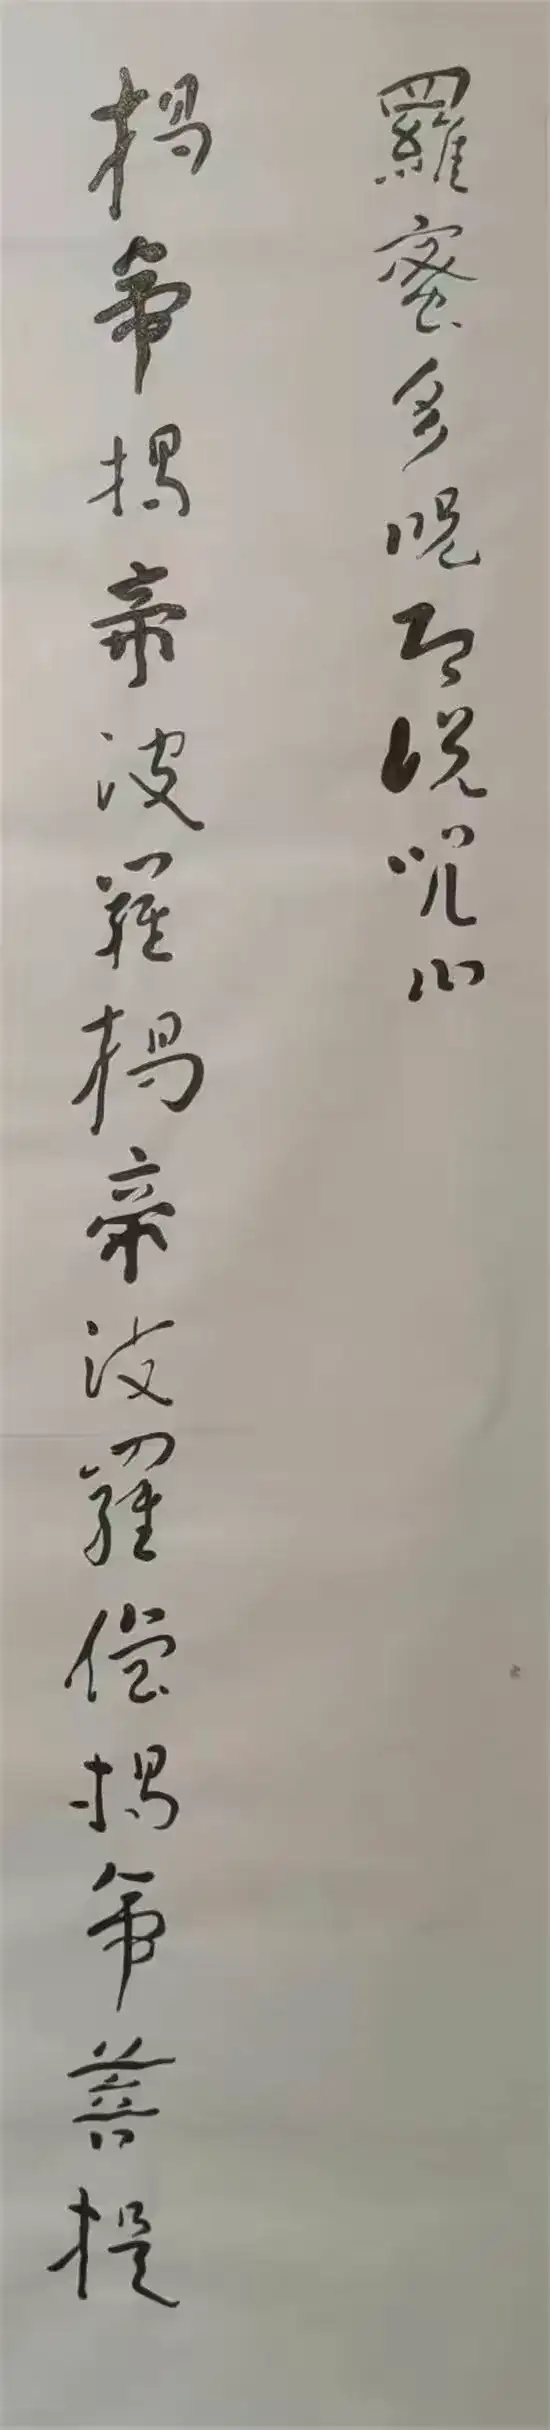 羅蜜多呪即説咒曰
揭帝揭帝波羅揭帝波羅僧揭帝菩提